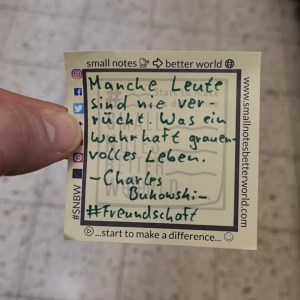 small notes better world
Manche Leute
sind nie ver-
rückt. Was ein
wahrhaft grauen-
volles Leben.
-Charles
Bukowski-
#Freundschaft
...start to make a difference...
www.smallnotesbetterworld.com
#SNBW